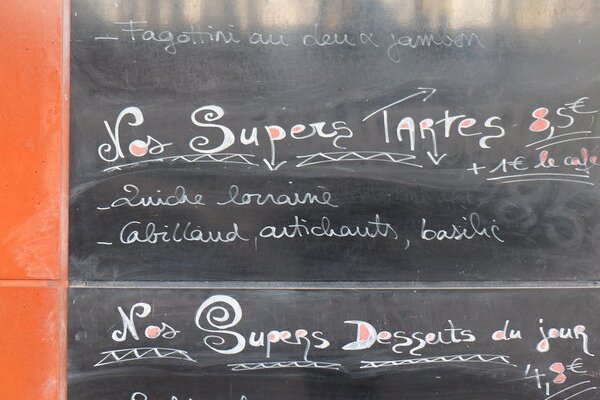 - Fagottini au deux jambon
Nos Supers Tartes 8,5€
+ 1€ le café
- Quiche lorraine
- Cabillaud, artichauts, basilic
Nos Supers Desserts du jour
4,8€